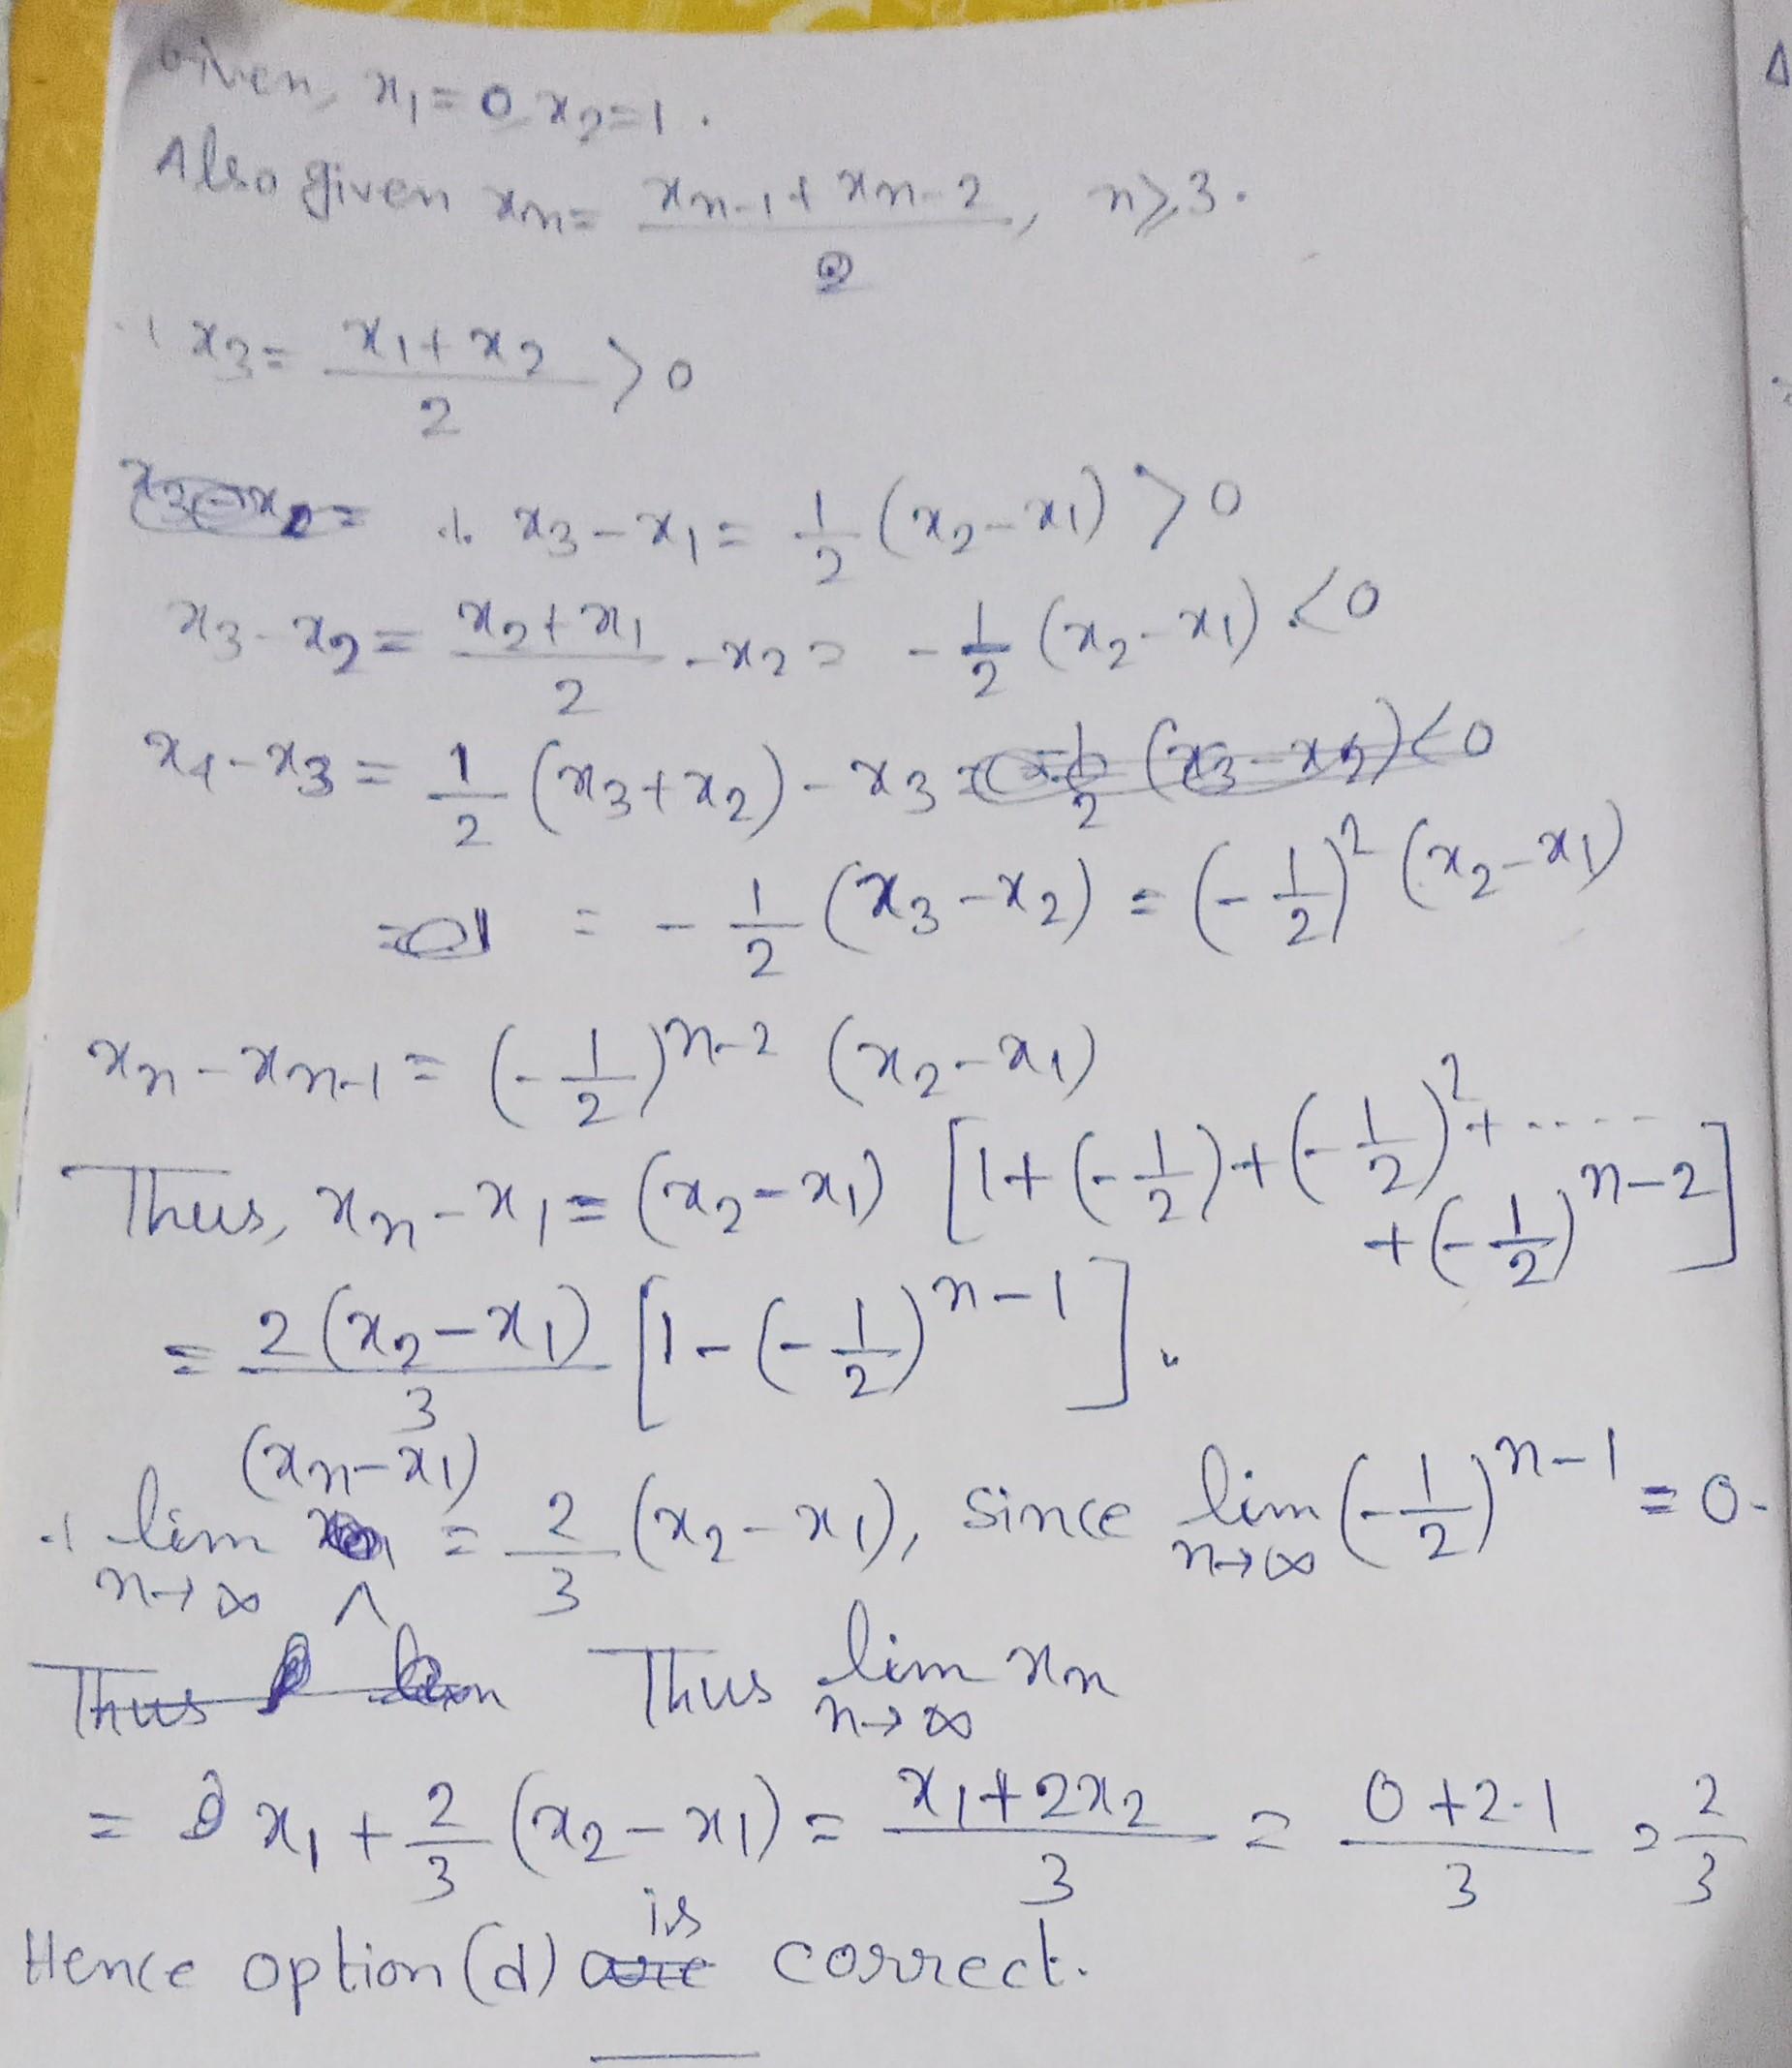 Given, x₁ = 0 x₂ = 1.
Also given xₙ = (xₙ₋₁ + xₙ₋₂)/2, n ≥ 3.
∴ x₃ = (x₁ + x₂)/2 > 0
∴ x₃ - x₁ = 1/2 (x₂ - x₁) > 0
x₃ - x₂ = (x₂ + x₁)/2 - x₂ = - 1/2 (x₂ - x₁) < 0
x₄ - x₃ = 1/2 (x₃ + x₂) - x₃
= - 1/2 (x₃ - x₂) = (- 1/2)² (x₂ - x₁)
xₙ - xₙ₋₁ = (- 1/2)ⁿ⁻² (x₂ - x₁)
Thus, xₙ - x₁ = (x₂ - x₁) [1 + (- 1/2) + (- 1/2)² + .....
+ (- 1/2)ⁿ⁻²]
= 2(x₂ - x₁)/3 [1 - (- 1/2)ⁿ⁻¹].
∴ lim n→∞ (xₙ - x₁) = 2/3 (x₂ - x₁), since lim n→∞ (- 1/2)ⁿ⁻¹ = 0.
Thus Thus lim n→∞ xₙ
= x₁ + 2/3 (x₂ - x₁) = (x₁ + 2x₂)/3 = (0 + 2·1)/3 = 2/3
Hence option (d) are is correct.